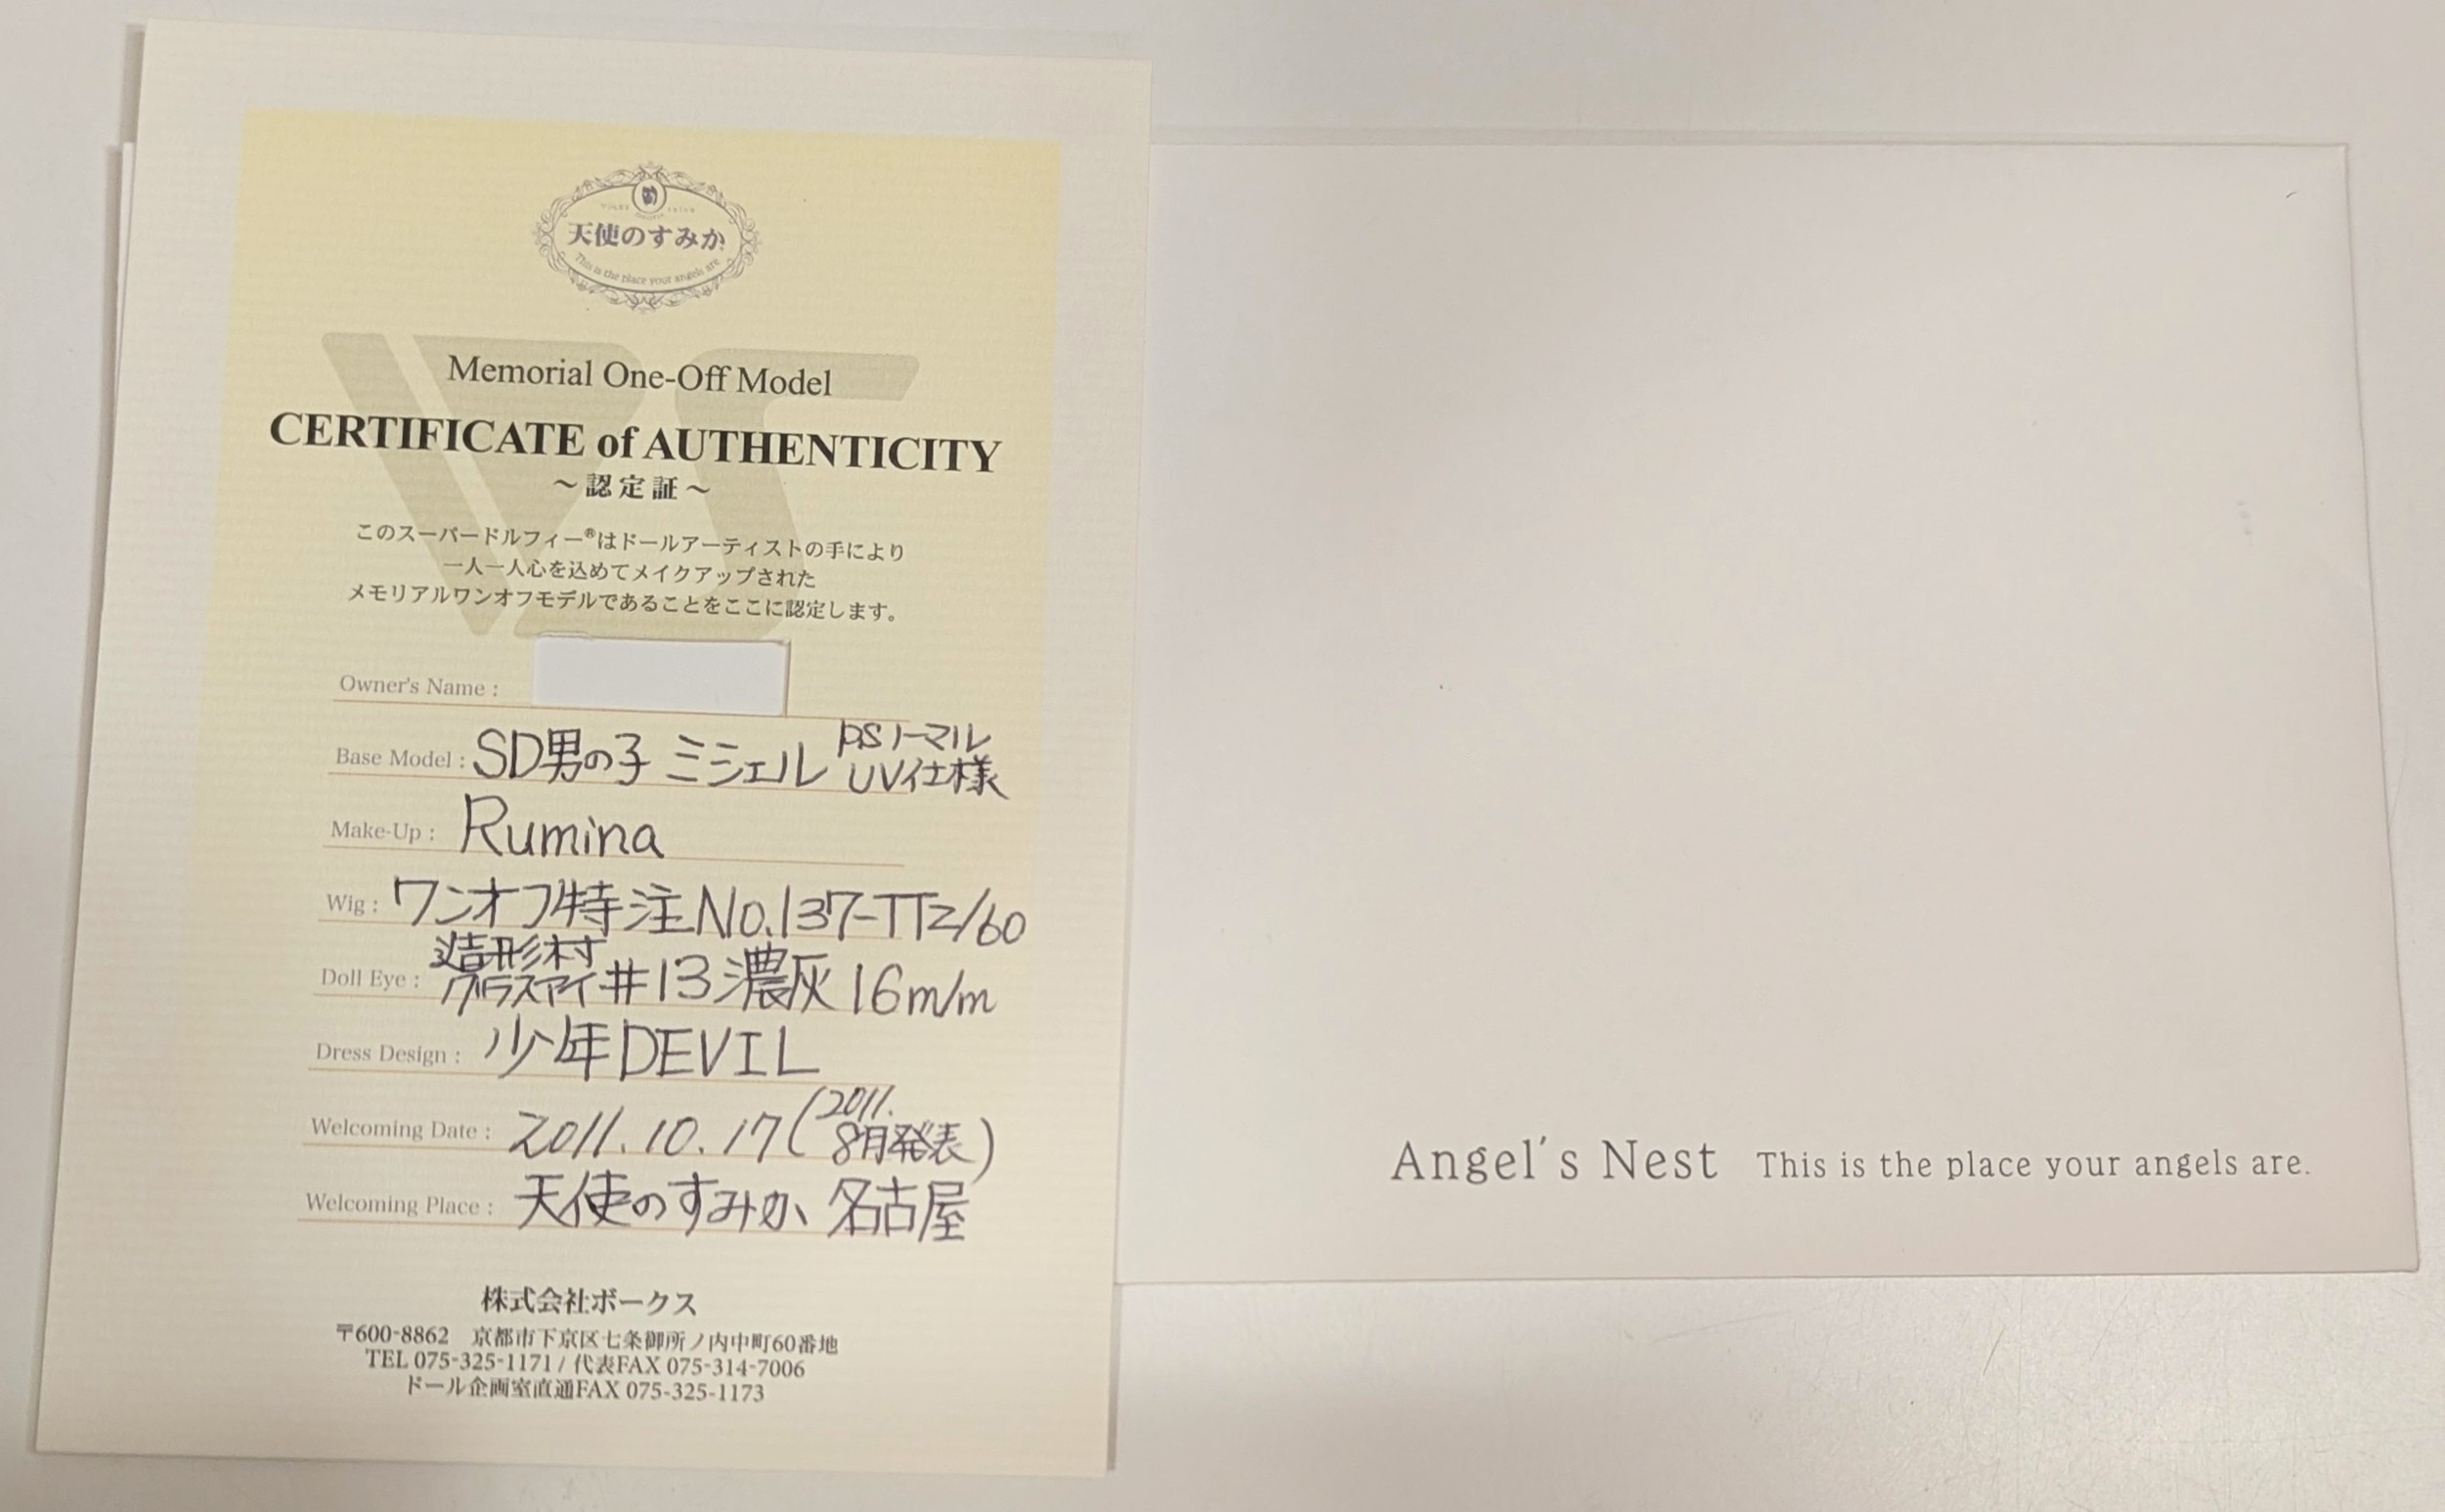 天使のすみか
This is the place your angels are
Memorial One-Off Model
CERTIFICATE of AUTHENTICITY
～認定証～
このスーパードルフィー®はドールアーティストの手により
一人一人心を込めてメイクアップされた
メモリアルワンオフモデルであることをここに認定します。
Owner's Name :
Base Model : SD男の子 ミシェル PSノーマル UV仕様
Make-Up : Rumina
Wig : ワンオフ特注No.137-TT2/60
Doll Eye : 造形村グラスアイ#13濃灰16m/m
Dress Design : 少年DEVIL
Welcoming Date : 2011.10.17(2011.8月発表)
Welcoming Place : 天使のすみか 名古屋
株式会社ボークス
〒600-8862 京都市下京区七条御所ノ内中町60番地
TEL 075-325-1171 / 代表FAX 075-314-7006
ドール企画室直通FAX 075-325-1173
Angel's Nest This is the place your angels are.